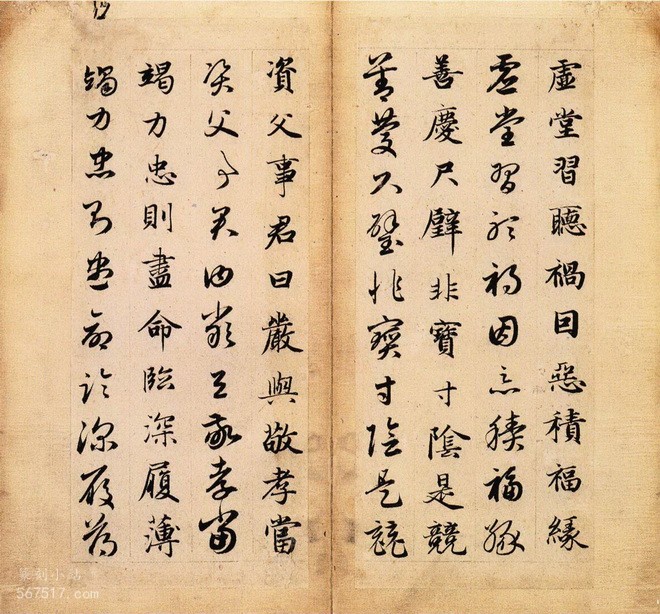 虛堂習聽禍因惡積福緣
虛堂習聽禍因惡積福緣
善慶尺璧非寶寸陰是競
善慶尺璧非寶寸陰是競
資父事君曰嚴與敬孝當
資父事君曰嚴與敬孝當
竭力忠則盡命臨深履薄
竭力忠則盡命臨深履薄
篆刻小站
567517.com